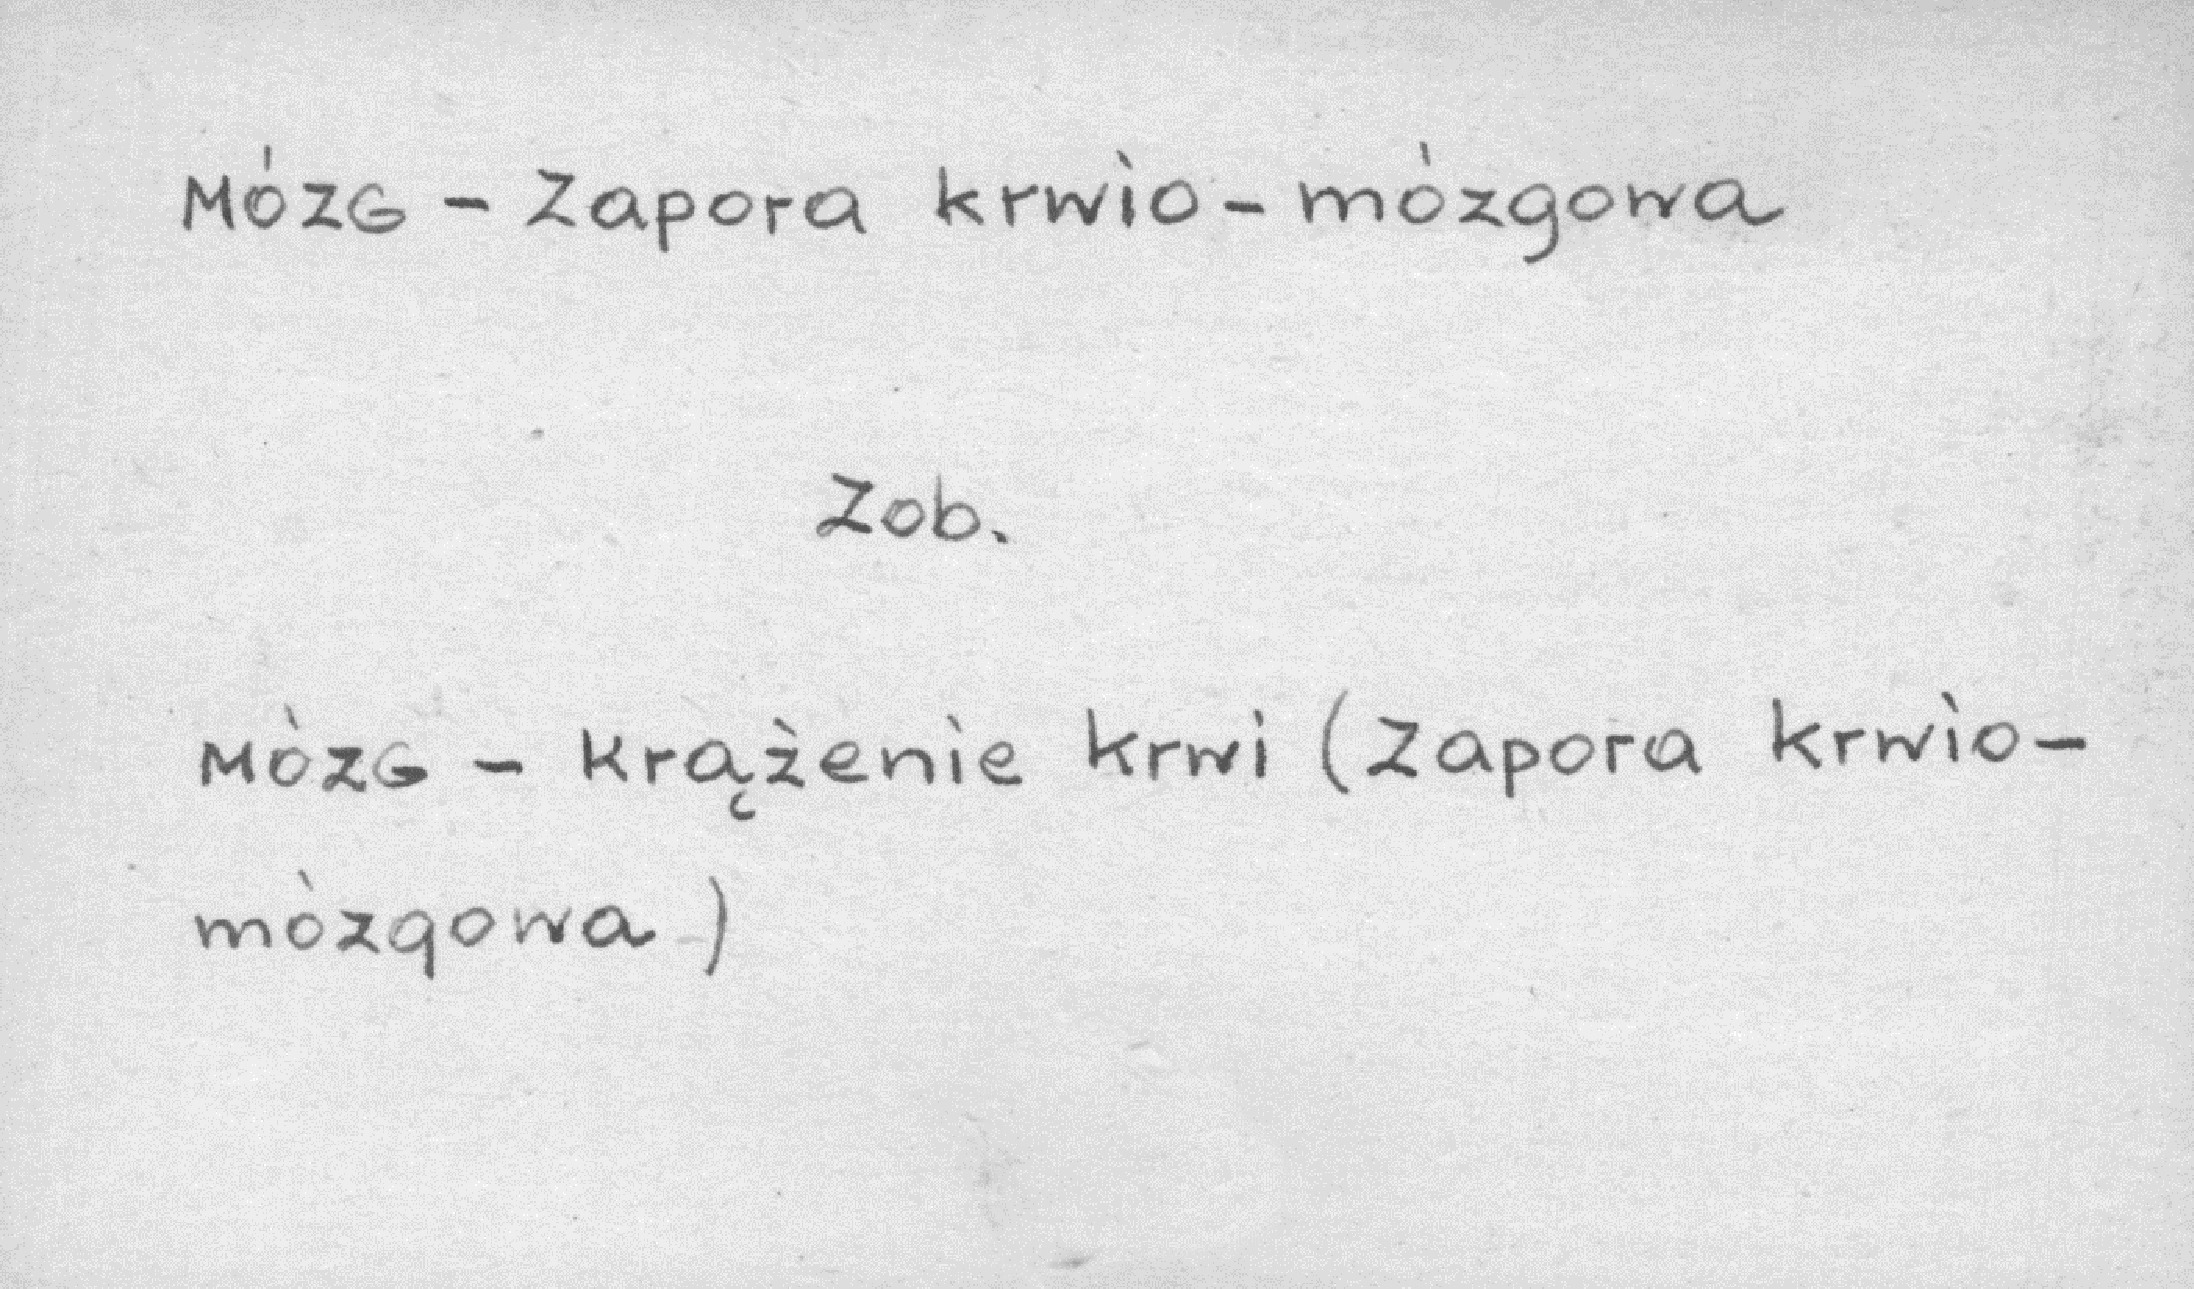 MÓZG - Zapora krwio-mózgowa
Zob.
MÓZG - krążenie krwi (Zapora krwio-
mózgowa)